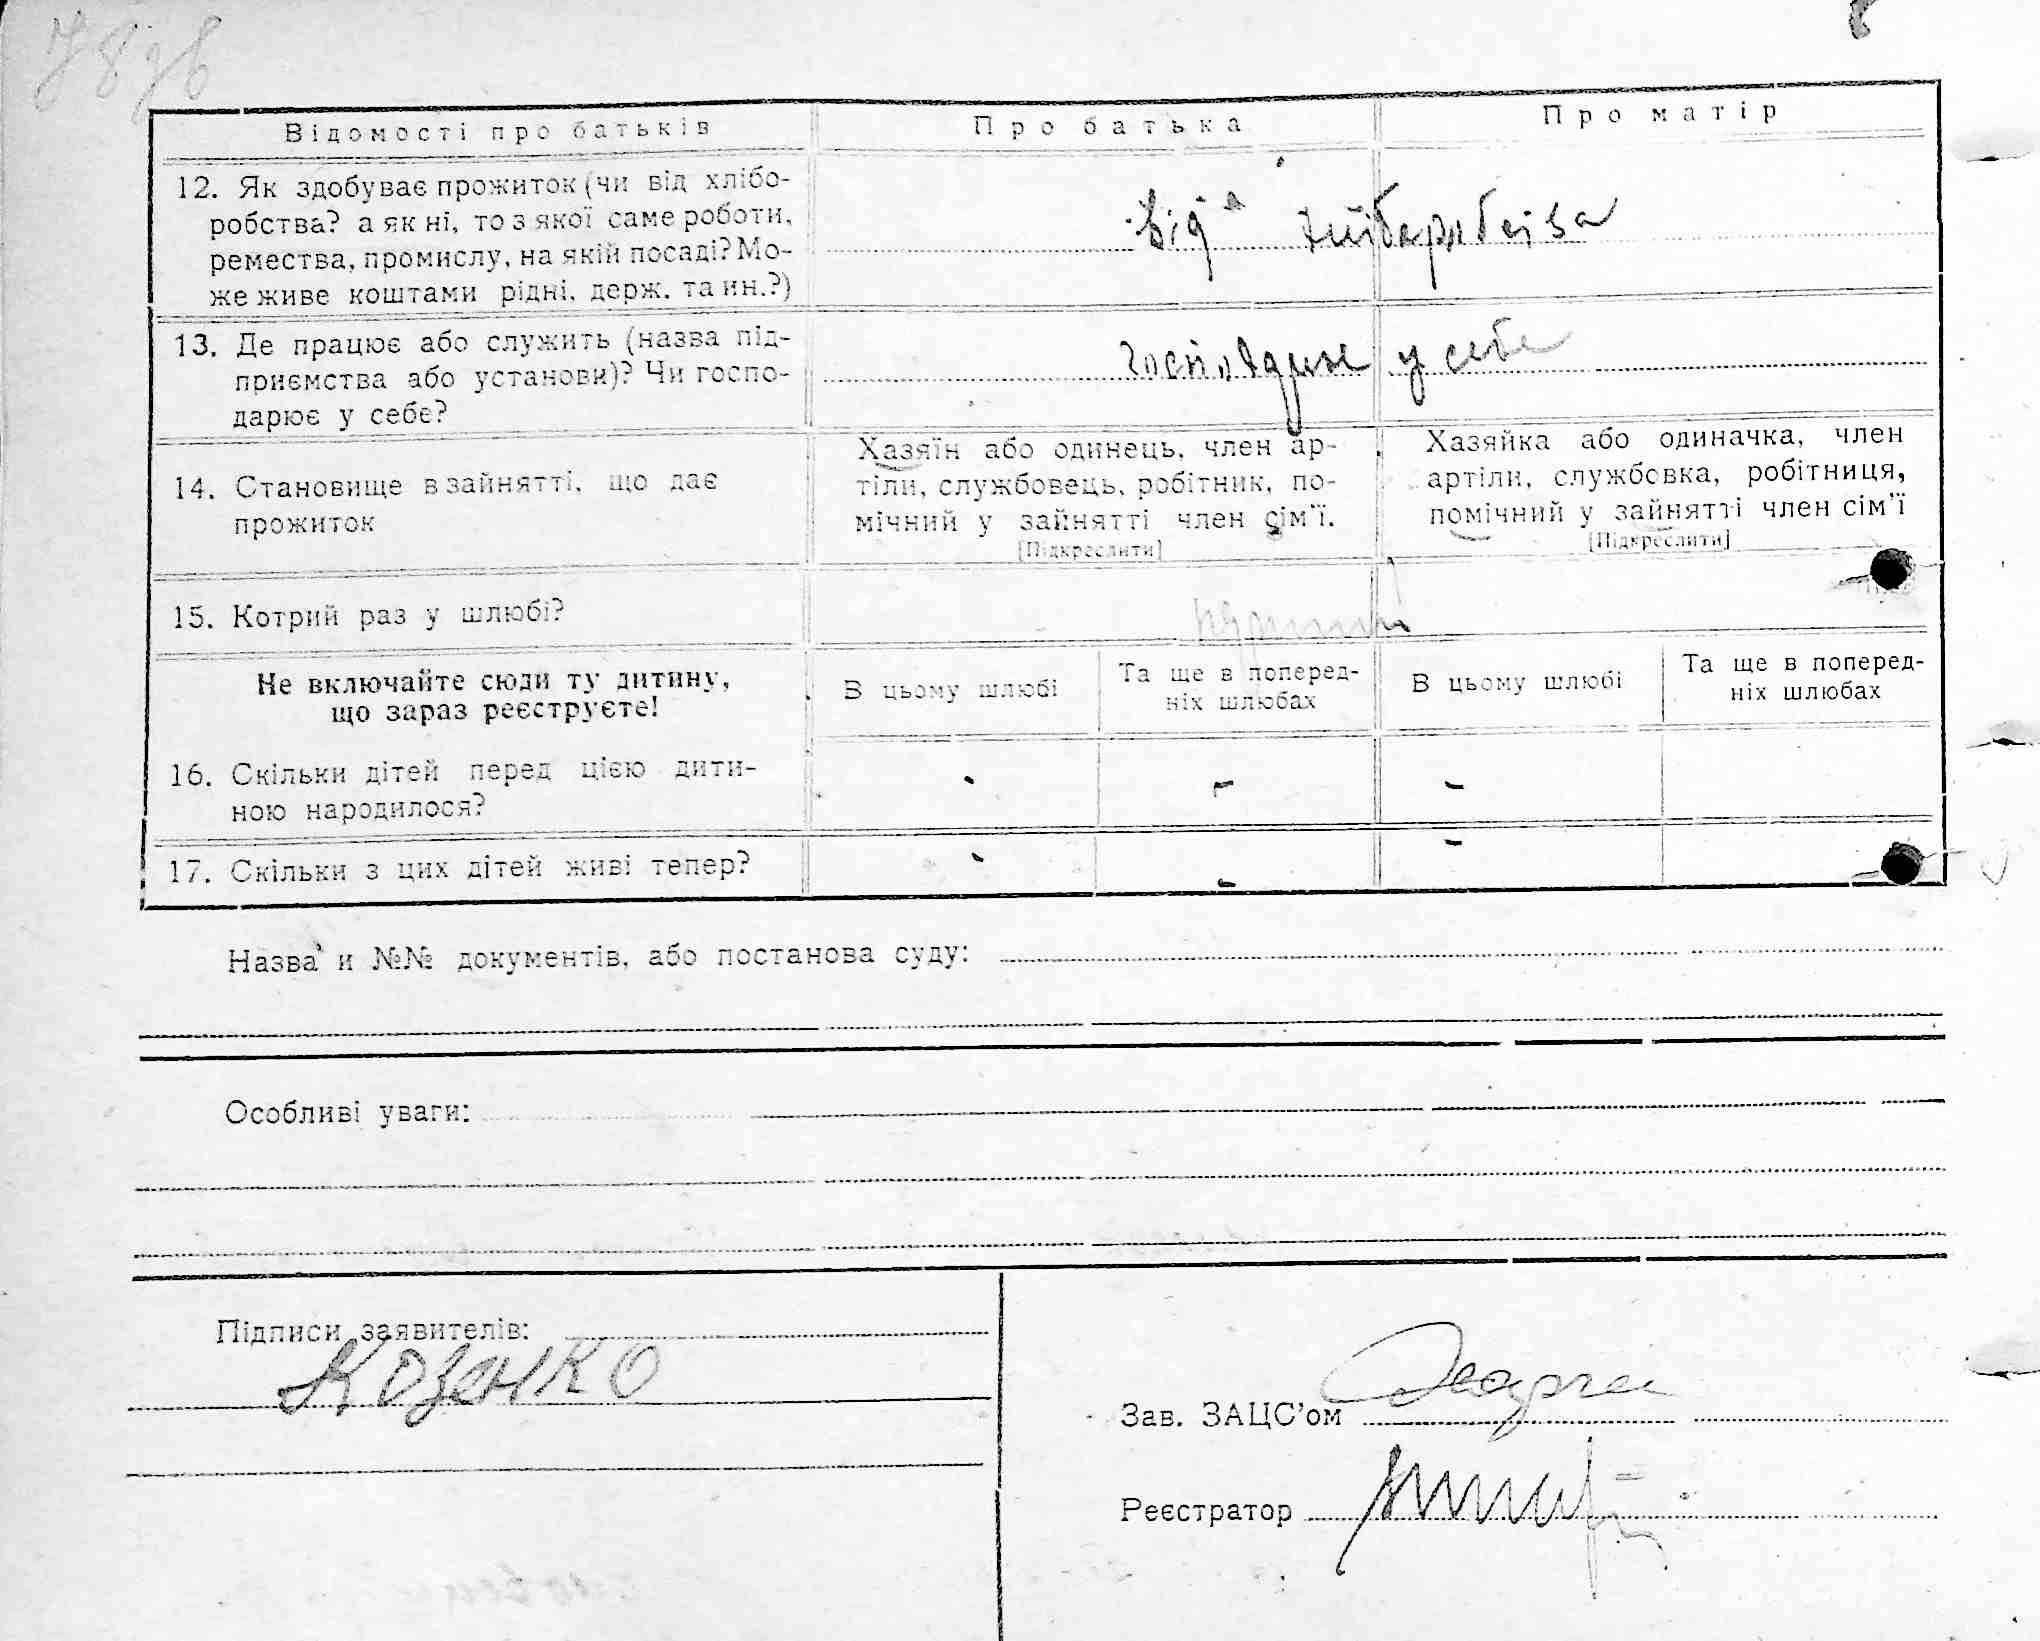 78зв
8
Відомості про батьків
Про батька
Про матір
12. Як здобуває прожиток (чи від хлібо-
робства? а як ні, то з якої саме роботи,
ремества, промислу, на якій посаді? Мо-
же живе коштами рідні, держ. та ин.?)
від хліборобства
13. Де працює або служить (назва під-
приємства або установи)? Чи госпо-
дарює у себе?
господарює у себе
14. Становище в зайнятті, що дає
прожиток
Хазяїн або одинець, член ар-
тіли, службовець, робітник, по-
мічний у зайнятті член сім'ї.
[Підкреслити]
Хазяйка або одиначка, член
артіли, службовка, робітниця,
помічний у зайнятті член сім'ї
[Підкреслити]
15. Котрий раз у шлюбі?
Не включайте сюди ту дитину,
що зараз реєструєте!
В цьому шлюбі
Та ще в поперед-
ніх шлюбах
В цьому шлюбі
Та ще в поперед-
ніх шлюбах
16. Скільки дітей перед цією дити-
ною народилося?
- - -
17. Скільки з цих дітей живі тепер?
- - -
Назва и №№ документів, або постанова суду:
Особливі уваги:
Підписи заявителів:
Козенко
Зав. ЗАЦС'ом
Реєстратор